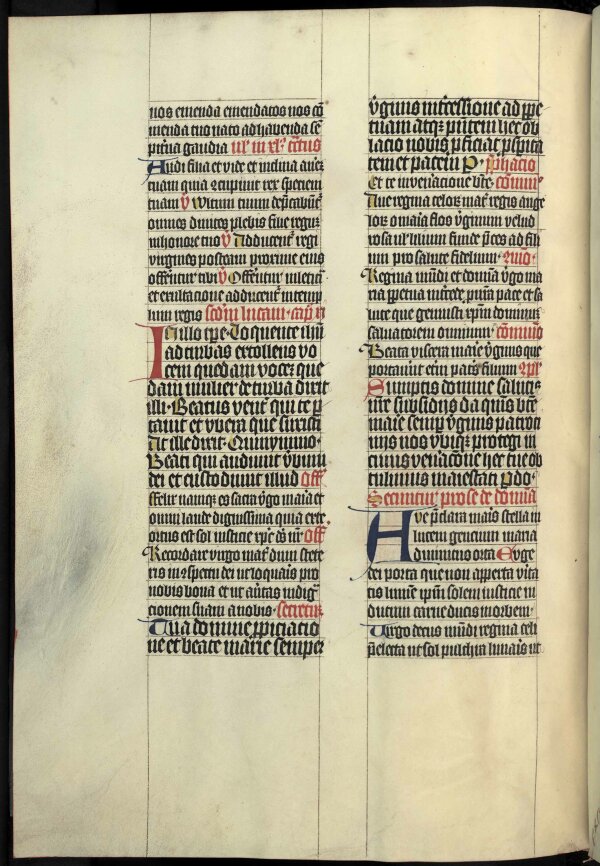 nos emenda emendatos nos cō
menda tuo nato ad habenda sē
pit̄na gaudia ul' in xl' tr̄ctus
Audi filia et vide et inclina aurē
tuam quia concupiuit rex speciem
tuam V̄ Wltum tuum deprecabūt᷑
omnes diuites plebis filie regū
in honore tuo V̄ Adducent᷑ regi
virgines posteam proxime eius
offerent᷑ tibi V̄ Offerent᷑ in leticia
et exultacione adducent᷑ in templ
lum regis scd̄m lucam · cap
In illo tp̄e · Loquente ihū
ad turbas extollens vo
cem quedam voce que
dam mulier de turba dixit
illi · Beatus vent᷑ qui te p̄
tauit et vbera que suxisti
At ille dixit · Quinymmo ·
Beati qui audiunt v̄bum
dei et custodiunt illud off
ffelix namqȝ es sacra v̄go maria et
omni laude dignissima quia ex te
ortus est sol iusticie xp̄c ds̄ nr̄ off
Recordare virgo mat᷑ dum stete
ris in conspectu dei ut loquaris pro
nobis bona et ut au᷑tas indig
cionem suam a nobis · secretū
Tua domine ꝓpiciacio
ne et beate marie semper
v̄ginis int᷑cessione ad ꝑpe
tuam atqȝ pn̄tem hec ob
lacio nobis ꝓficiat ꝓspita
tem et pacem P · p̄fhacio
Et te in ven᷑acione bt̄e · cōmun᷑
Aue regina celoȝ mat᷑ regis ange
loȝ o maria flos v̄ginum velud
rosa ul' lilium funde p̄ces ad fili
um pro salute fidelium ·
Regina mūdi et domīa v̄go ma
ria ꝑpetua int᷑cede p̄ nr̄a pace et sa
lute que genuisti xp̄m dominū
saluatorem omnium · cōmunio
Beata viscera marie v̄ginis que
portauer̄t et᷑ni pat᷑s filium
Sumptis domine salutis
nr̄e subsidijs da quis bt̄e
marie semp̄ v̄ginis patroci
nijs nos vbiqȝ protegi in
cuius ven᷑acōne hec tue ob
tulimus maiestati P do ·
Secuntur prose de domīa
Aue p̄clara maris stella in
lucem gencium maria
diuinitus orta Euge
dei porta que non apperta v̄ita
tis lumē ip̄m solem iusticie in
dutum carne ducis in orbem ·
Virgo decus mūdi regina celi
p̄electa ut sol pulchra lunaris ut